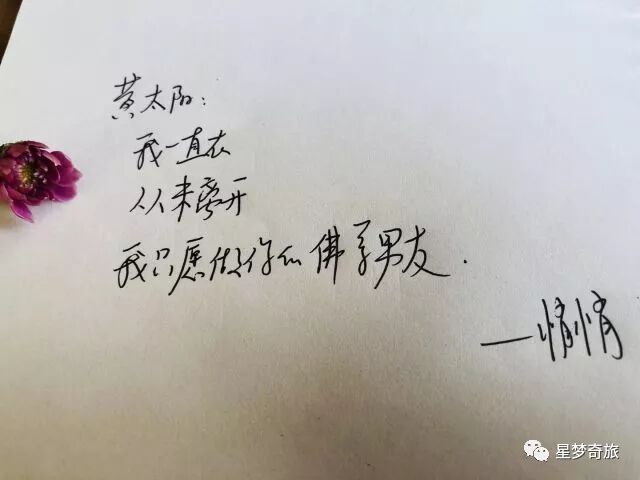 黄太阳：
我一直在
从未离开
我只愿做你的佛系男友.
—悄悄
星梦奇旅